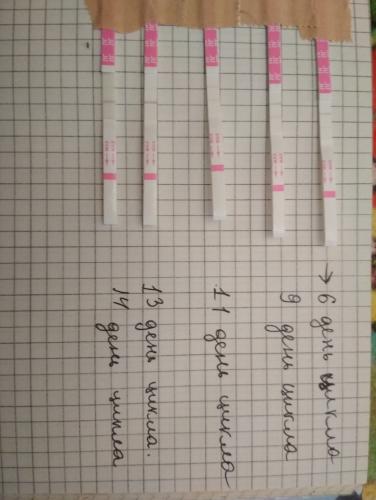 → 6 день цикла
9 день цикла
11 день цикла
13 день цикла.
14 день цикла